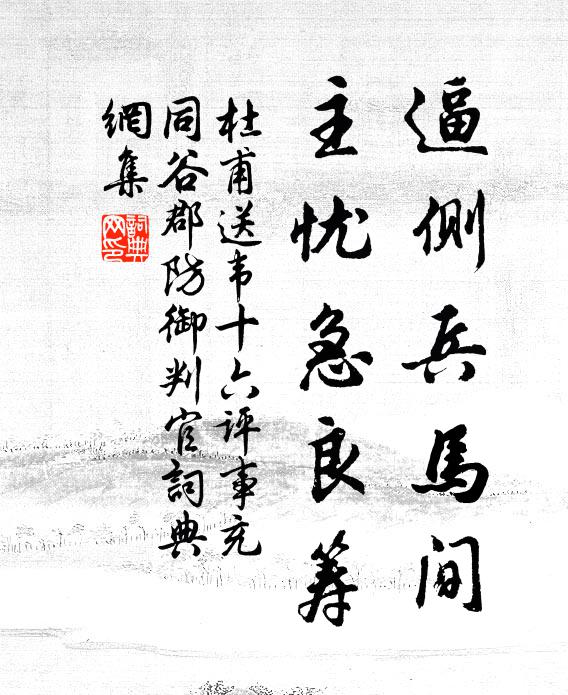 逼侧兵馬间
主忧急良筹
杜甫送韦十六評事充
同谷郡防御判官詞典
網集
詞典
网印